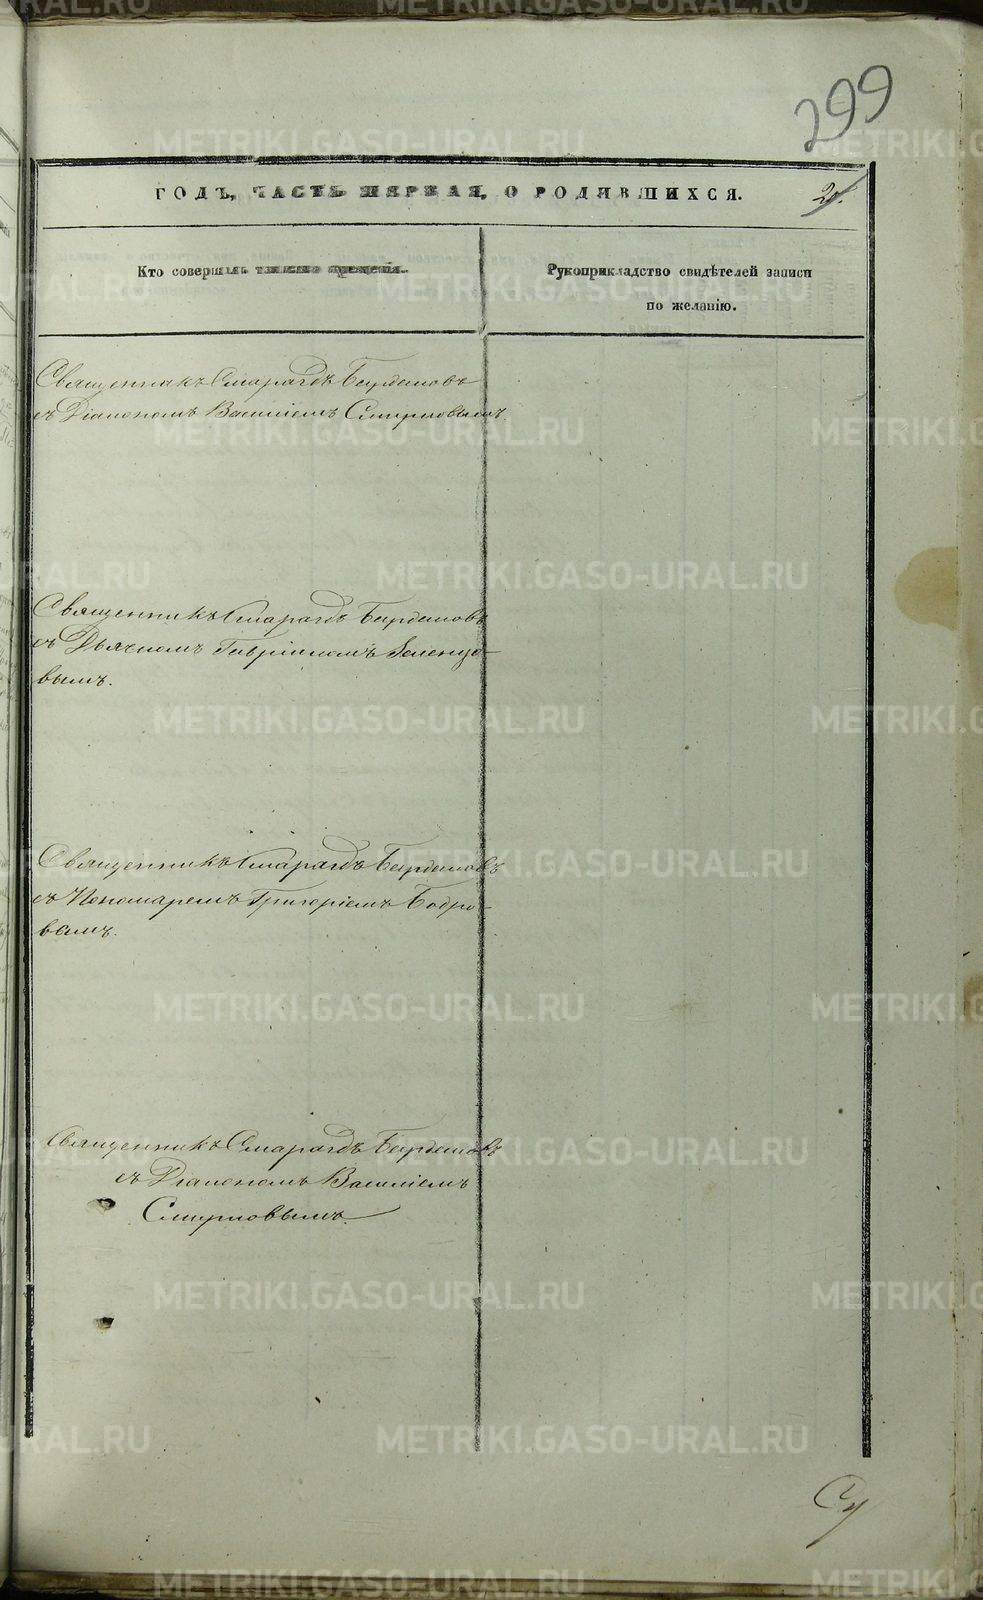 299
ГОДЪ, ЧАСТЬ ПЕРВАЯ, О РОДИВШИХСЯ.
Кто совершалъ таинство крещенія.
Рукоприкладство свидѣтелей записи
по желанію.
Священникъ Смарагдъ Бирдемовъ
съ Діакономъ Василіемъ Смирновымъ.
Священникъ Смарагдъ Бирдемовъ
съ Дьячкомъ Гавріиломъ Зеленцо-
вымъ.
Священникъ Смарагдъ Бирдемовъ
съ Пономаремъ Григоріемъ Бодро-
вымъ.
Священникъ Смарагдъ Бирдемовъ
съ Діакономъ Василіемъ
Смирновымъ.
METRIKI.GASO-URAL.RU